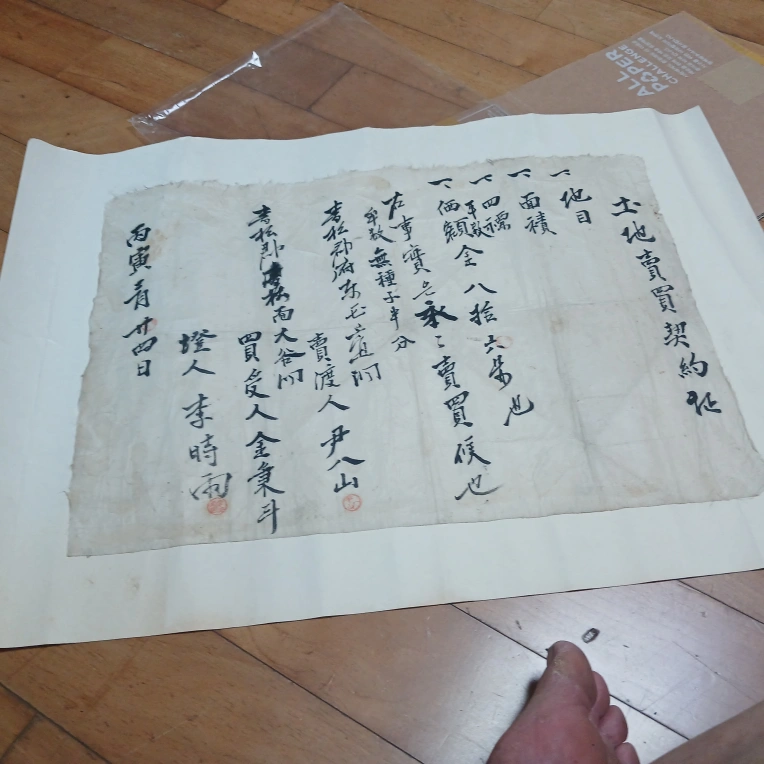 土地賣買契約证
一、地目
一、面積
一、四標
一、価額金八拾六円也
右事實 賣買候也
年数無種子 分
靑松郡府東面 洞
賣渡人 尹八山
靑松郡靑松面大谷洞
買受人 金秉斗
證人 李時雨
丙寅 月廿四日
ALL
PAPER
CHALLENGE